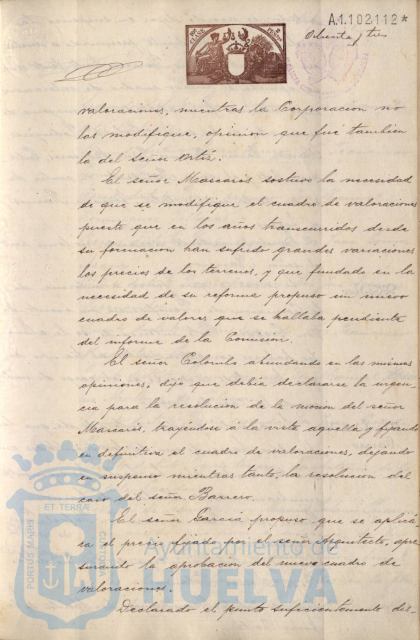 A.1.102.112*
Ochenta y tres
valoraciones, mientras la Corporación no
las modifique, opinión que fué tambien
la del Señor Ortiz.
El señor Mascarós sostuvo la necesidad
de que se modifique el cuadro de valoraciones
puesto que en los años transcurridos desde
su formación han sufrido grandes variaciones
los precios de los terrenos, y que fundado en la
necesidad de su reforma propuso un nuevo
cuadro de valores que se hallaba pendiente
del informe de la Comisión.
El señor abundando en las mismas
opiniones, dijo que debía declararse la urgen-
cia para la resolución de la moción del señor
Mascarós, trayéndose á la vista aquella y fijando
en definitiva el cuadro de valoraciones, dejando
en suspenso mientras tanto, la resolución del
caso del señor Barrero.
El señor García propuso que se aplica-
ra el precio fijado por el señor Arquitecto, apre-
surando la aprobación del nuevo cuadro de
valoraciones.
Declarado el punto suficientemente dis-
PORTUS MARIS
ET TERRÆ
CUSTODIA
Ayuntamiento de
HUELVA